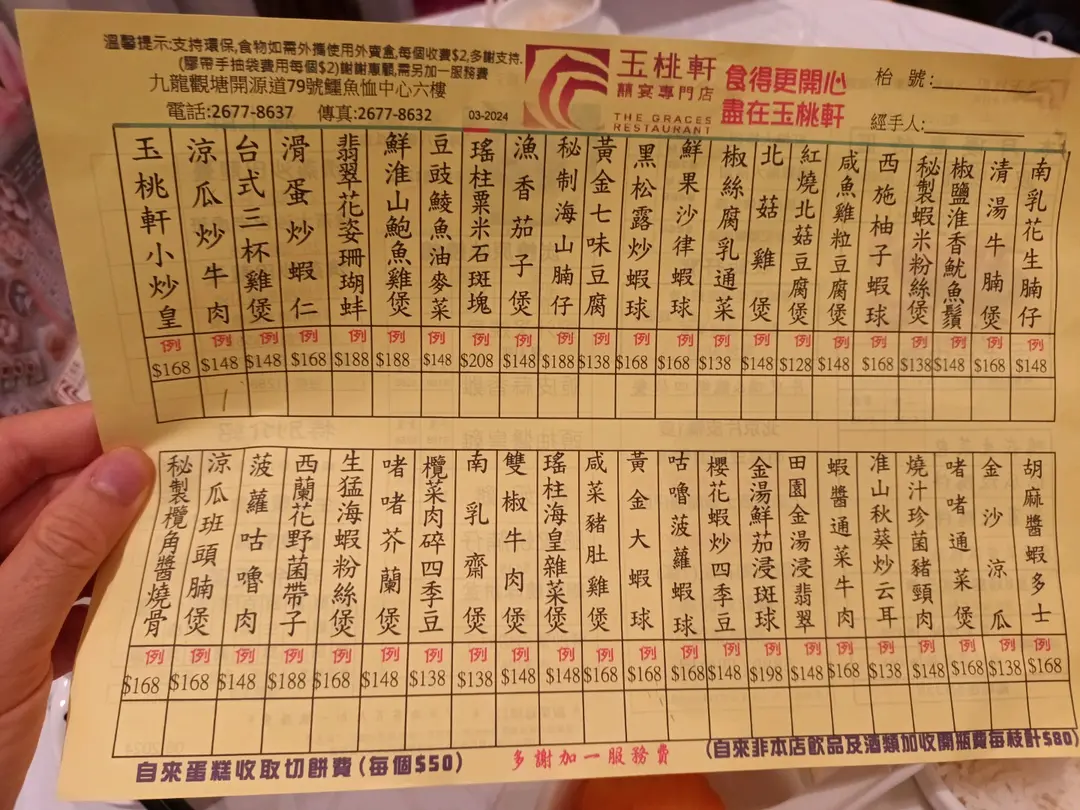 溫馨提示:支持環保,食物如需外攜使用外賣盒,每個收費$2,多謝支持.
(膠帶手抽袋費用每個$2)謝謝惠顧,需另加一服務費
九龍觀塘開源道79號鱷魚恤中心六樓
電話:2677-8637 傳真:2677-8632
03-2024
玉桃軒
囍宴專門店
THE GRACES
RESTAURANT
食得更開心
盡在玉桃軒
枱 號:
經手人:
南乳花生腩仔
例
$148
清湯牛腩煲
例
$168
椒鹽淮香魷魚鬚
例
$148
秘製蝦米粉絲煲
例
$138
西施柚子蝦球
例
$168
咸魚雞粒豆腐煲
例
$148
紅燒北菇豆腐煲
例
$128
北菇雞煲
例
$148
椒絲腐乳通菜
例
$138
鮮果沙律蝦球
例
$168
黑松露炒蝦球
例
$168
黃金七味豆腐
例
$138
秘制海山腩仔
例
$188
漁香茄子煲
例
$148
瑤柱粟米石斑塊
例
$208
豆豉鯪魚油麥菜
例
$148
鮮淮山鮑魚雞煲
例
$188
翡翠花姿珊瑚蚌
例
$188
滑蛋炒蝦仁
例
$168
台式三杯雞煲
例
$148
涼瓜炒牛肉
例
$148
玉桃軒小炒皇
例
$168
胡麻醬蝦多士
例
$168
金沙涼瓜
例
$138
啫啫通菜煲
例
$168
燒汁珍菌豬頸肉
例
$148
准山秋葵炒云耳
例
$138
蝦醬通菜牛肉
例
$168
田園金湯浸翡翠
例
$148
金湯鮮茄浸斑球
例
$198
櫻花蝦炒四季豆
例
$148
咕嚕菠蘿蝦球
例
$168
黃金大蝦球
例
$168
咸菜豬肚雞煲
例
$168
瑤柱海皇雜菜煲
例
$148
雙椒牛肉煲
例
$148
南乳齋煲
例
$138
欖菜肉碎四季豆
例
$138
啫啫芥蘭煲
例
$148
生猛海蝦粉絲煲
例
$168
西蘭花野菌帶子
例
$188
菠蘿咕嚕肉
例
$148
涼瓜班頭腩煲
例
$168
秘製欖角醬燒骨
例
$168
自來蛋糕收取切餅費(每個$50)
多謝加一服務費
(自來非本店飲品及酒類加收開瓶費每枝計$80)